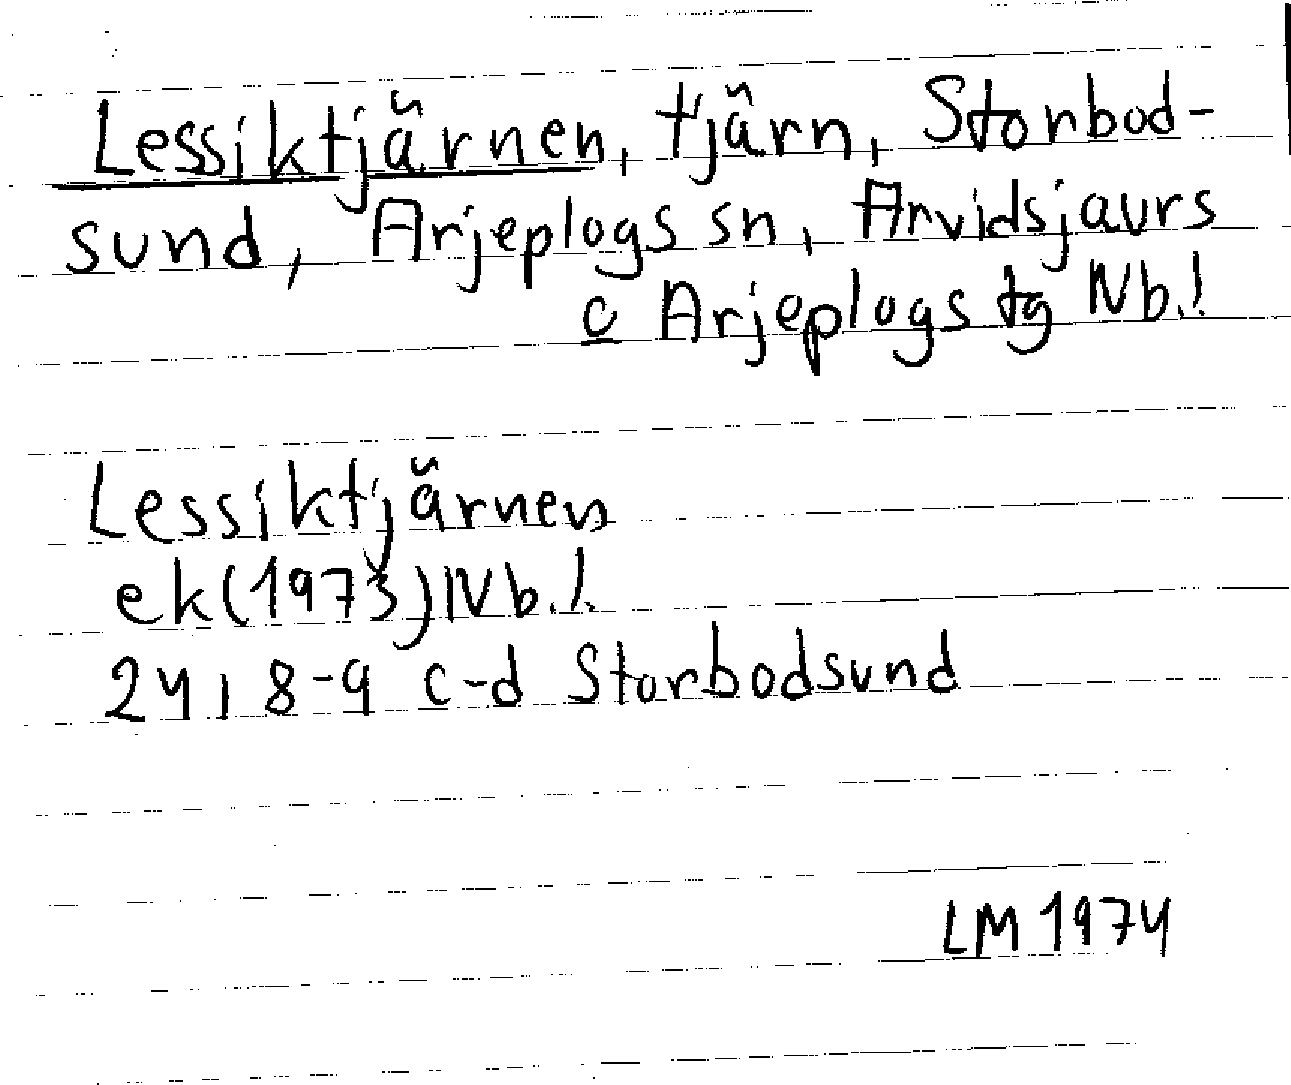 Lessiktjärnen, tjärn, Storbod-
sund, Arjeplogs sn, Arvidsjaurs
o Arjeplogs tg Nb.l
Lessiktjärnen
ek(1973)Nb.l.
24I 8-9 c-d Storbodsund
LM 1974